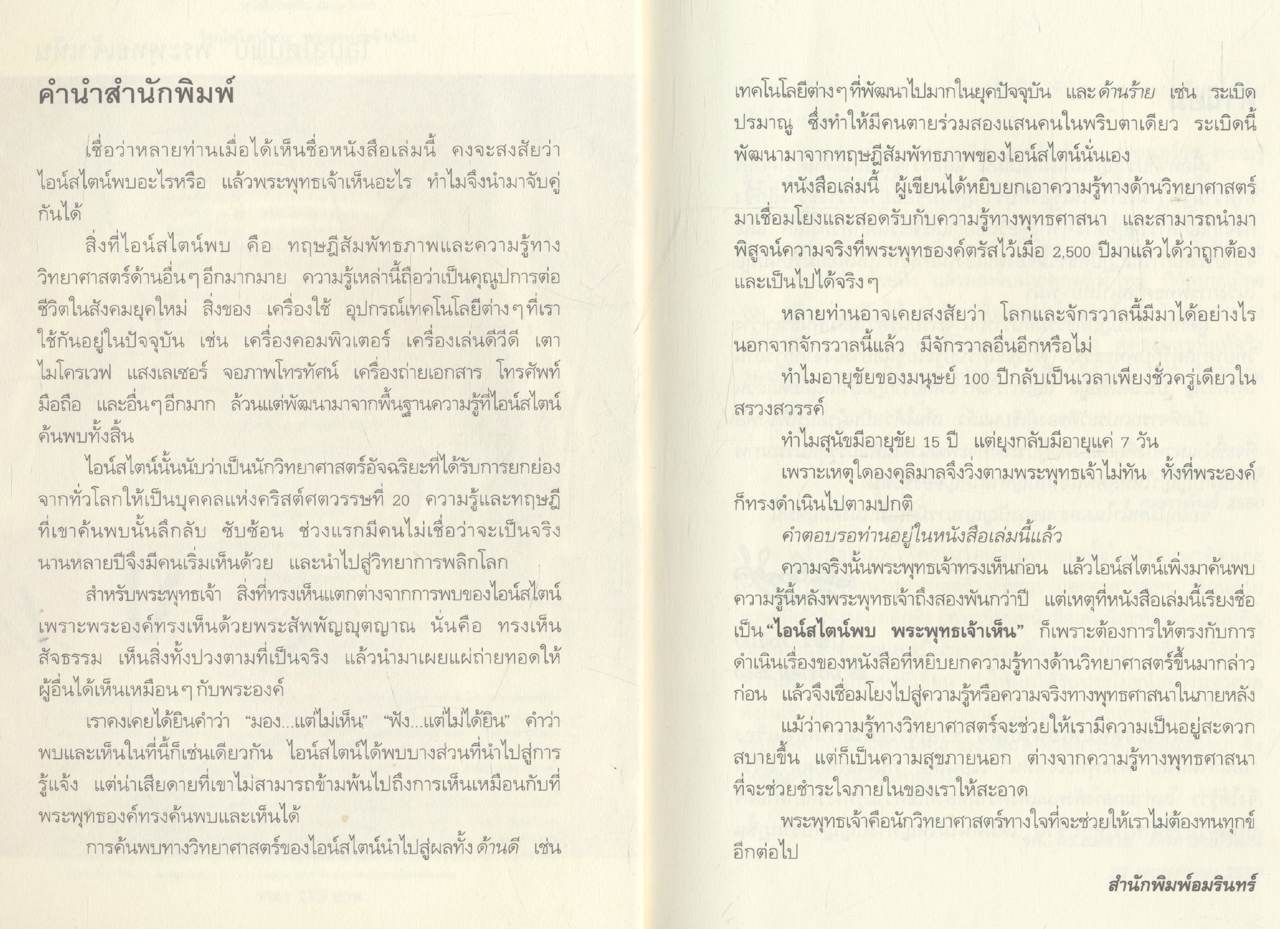 คำนำสำนักพิมพ์
เชื่อว่าหลายท่านเมื่อได้เห็นชื่อหนังสือเล่มนี้ คงจะสงสัยว่า
ไอน์สไตน์พบอะไรหรือ แล้วพระพุทธเจ้าเห็นอะไร ทำไมจึงนำมาจับคู่
กันได้
สิ่งที่ไอน์สไตน์พบ คือ ทฤษฎีสัมพัทธภาพและความรู้ทาง
วิทยาศาสตร์ด้านอื่นๆ อีกมากมาย ความรู้เหล่านี้ถือว่าเป็นคุณูปการต่อ
ชีวิตในสังคมยุคใหม่ สิ่งของ เครื่องใช้ อุปกรณ์เทคโนโลยีต่างๆ ที่เรา
ใช้กันอยู่ในปัจจุบัน เช่น เครื่องคอมพิวเตอร์ เครื่องเล่นดีวีดี เตา
ไมโครเวฟ แสงเลเซอร์ จอภาพโทรทัศน์ เครื่องถ่ายเอกสาร โทรศัพท์
มือถือ และอื่นๆ อีกมาก ล้วนแต่พัฒนามาจากพื้นฐานความรู้ที่ไอน์สไตน์
ค้นพบทั้งสิ้น
ไอน์สไตน์นั้นนับว่าเป็นนักวิทยาศาสตร์อัจฉริยะที่ได้รับการยกย่อง
จากทั่วโลกให้เป็นบุคคลแห่งคริสต์ศตวรรษที่ 20 ความรู้และทฤษฎี
ที่เขาค้นพบนั้นลึกลับ ซับซ้อน ช่วงแรกมีคนไม่เชื่อว่าจะเป็นจริง
นานหลายปีจึงมีคนเริ่มเห็นด้วย และนำไปสู่วิทยาการพลิกโลก
สำหรับพระพุทธเจ้า สิ่งที่ทรงเห็นแตกต่างจากการพบของไอน์สไตน์
เพราะพระองค์ทรงเห็นด้วยพระสัพพัญญุตญาณ นั่นคือ ทรงเห็น
สัจธรรม เห็นสิ่งทั้งปวงตามที่เป็นจริง แล้วนำมาเผยแผ่ถ่ายทอดให้
ผู้อื่นได้เห็นเหมือนๆ กับพระองค์
เราคงเคยได้ยินคำว่า “มอง...แต่ไม่เห็น” “ฟัง...แต่ไม่ได้ยิน” คำว่า
พบและเห็นในที่นี้ก็เช่นเดียวกัน ไอน์สไตน์ได้พบบางส่วนที่นำไปสู่การ
รู้แจ้ง แต่น่าเสียดายที่เขาไม่สามารถข้ามพ้นไปถึงการเห็นเหมือนกับที่
พระพุทธองค์ทรงค้นพบและเห็นได้
การค้นพบทางวิทยาศาสตร์ของไอน์สไตน์นำไปสู่ผลทั้ง ด้านดี เช่น
เทคโนโลยีต่างๆ ที่พัฒนาไปมากในยุคปัจจุบัน และด้านร้าย เช่น ระเบิด
ปรมาณู ซึ่งทำให้มีคนตายร่วมสองแสนคนในพริบตาเดียว ระเบิดนี้
พัฒนามาจากทฤษฎีสัมพัทธภาพของไอน์สไตน์นั่นเอง
หนังสือเล่มนี้ ผู้เขียนได้หยิบยกเอาความรู้ทางด้านวิทยาศาสตร์
มาเชื่อมโยงและสอดรับกับความรู้ทางพุทธศาสนา และสามารถนำมา
พิสูจน์ความจริงที่พระพุทธองค์ตรัสไว้เมื่อ 2,500 ปีมาแล้วได้ว่าถูกต้อง
และเป็นไปได้จริงๆ
หลายท่านอาจเคยสงสัยว่า โลกและจักรวาลนี้มีมาได้อย่างไร
นอกจากจักรวาลนี้แล้ว มีจักรวาลอื่นอีกหรือไม่
ทำไมอายุขัยของมนุษย์ 100 ปีกลับเป็นเวลาเพียงชั่วครู่เดียวใน
สรวงสวรรค์
ทำไมสุนัขมีอายุขัย 15 ปี แต่ยุงกลับมีอายุแค่ 7 วัน
เพราะเหตุใดองคุลิมาลจึงวิ่งตามพระพุทธเจ้าไม่ทัน ทั้งที่พระองค์
ก็ทรงดำเนินไปตามปกติ
คำตอบรอท่านอยู่ในหนังสือเล่มนี้แล้ว
ความจริงนั้นพระพุทธเจ้าทรงเห็นก่อน แล้วไอน์สไตน์เพิ่งมาค้นพบ
ความรู้นี้หลังพระพุทธเจ้าถึงสองพันกว่าปี แต่เหตุที่หนังสือเล่มนี้เรียงชื่อ
เป็น “ไอน์สไตน์พบ พระพุทธเจ้าเห็น” ก็เพราะต้องการให้ตรงกับการ
ดำเนินเรื่องของหนังสือที่หยิบยกความรู้ทางด้านวิทยาศาสตร์ขึ้นมากล่าว
ก่อน แล้วจึงเชื่อมโยงไปสู่ความรู้หรือความจริงทางพุทธศาสนาในภายหลัง
แม้ว่าความรู้ทางวิทยาศาสตร์จะช่วยให้เรามีความเป็นอยู่สะดวก
สบายขึ้น แต่ก็เป็นความสุขภายนอก ต่างจากความรู้ทางพุทธศาสนา
ที่จะช่วยชำระใจภายในของเราให้สะอาด
พระพุทธเจ้าคือนักวิทยาศาสตร์ทางใจที่จะช่วยให้เราไม่ต้องทนทุกข์
อีกต่อไป
สำนักพิมพ์อมรินทร์